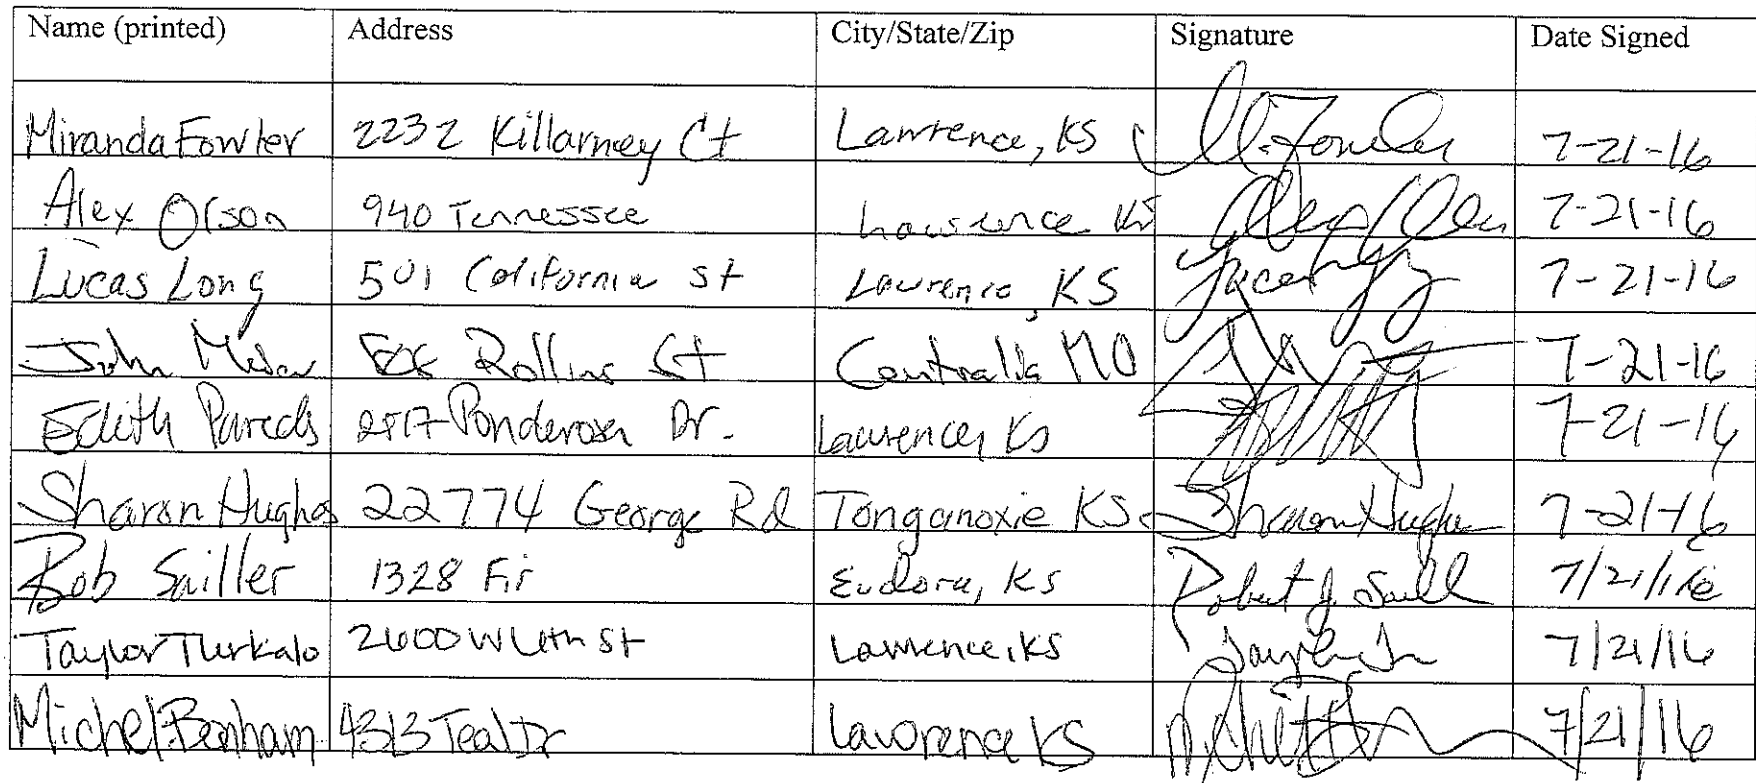 Name (printed) Address City/State/Zip Signature Date Signed
Miranda Fowler 2232 Killarney Ct Lawrence, KS M. Fowler 7-21-16
Alex Olson 940 Tennessee Lawrence KS 7-21-16
Lucas Long 501 California St Lawrence, KS 7-21-16
John Rollins St Centralia MO 7-21-16
Edith Ponderosa Dr. Lawrence, KS 7-21-16
Sharon Hughes 22774 George Rd Tonganoxie KS Sharon Hughes 7-21-16
Bob Sailler 1328 Fir Eudora, KS Robert J. 7/21/16
Taylor Turkalo 2600 W 6th St Lawrence, KS 7/21/16
Michel Benham 4313 Teal Dr Lawrence KS 7/21/16